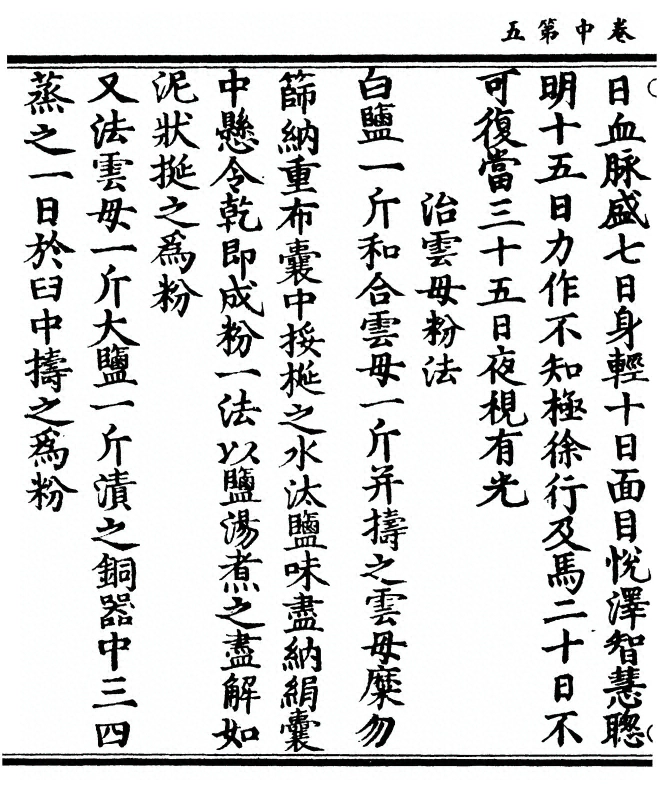 卷中第五
日血脉盛七日身輕十日面目悅澤智慧聰
明十五日力作不知極徐行及馬二十日不
可復當三十五日夜視有光
治雲母粉法
白鹽一斤和合雲母一斤并擣之雲母糜勿
篩納重布囊中挼挻之水汰鹽味盡納絹囊
中懸令乾即成粉一法以鹽湯煮之盡解如
泥狀挻之爲粉
又法雲母一斤大鹽一斤漬之銅器中三四
蒸之一日於臼中擣之爲粉